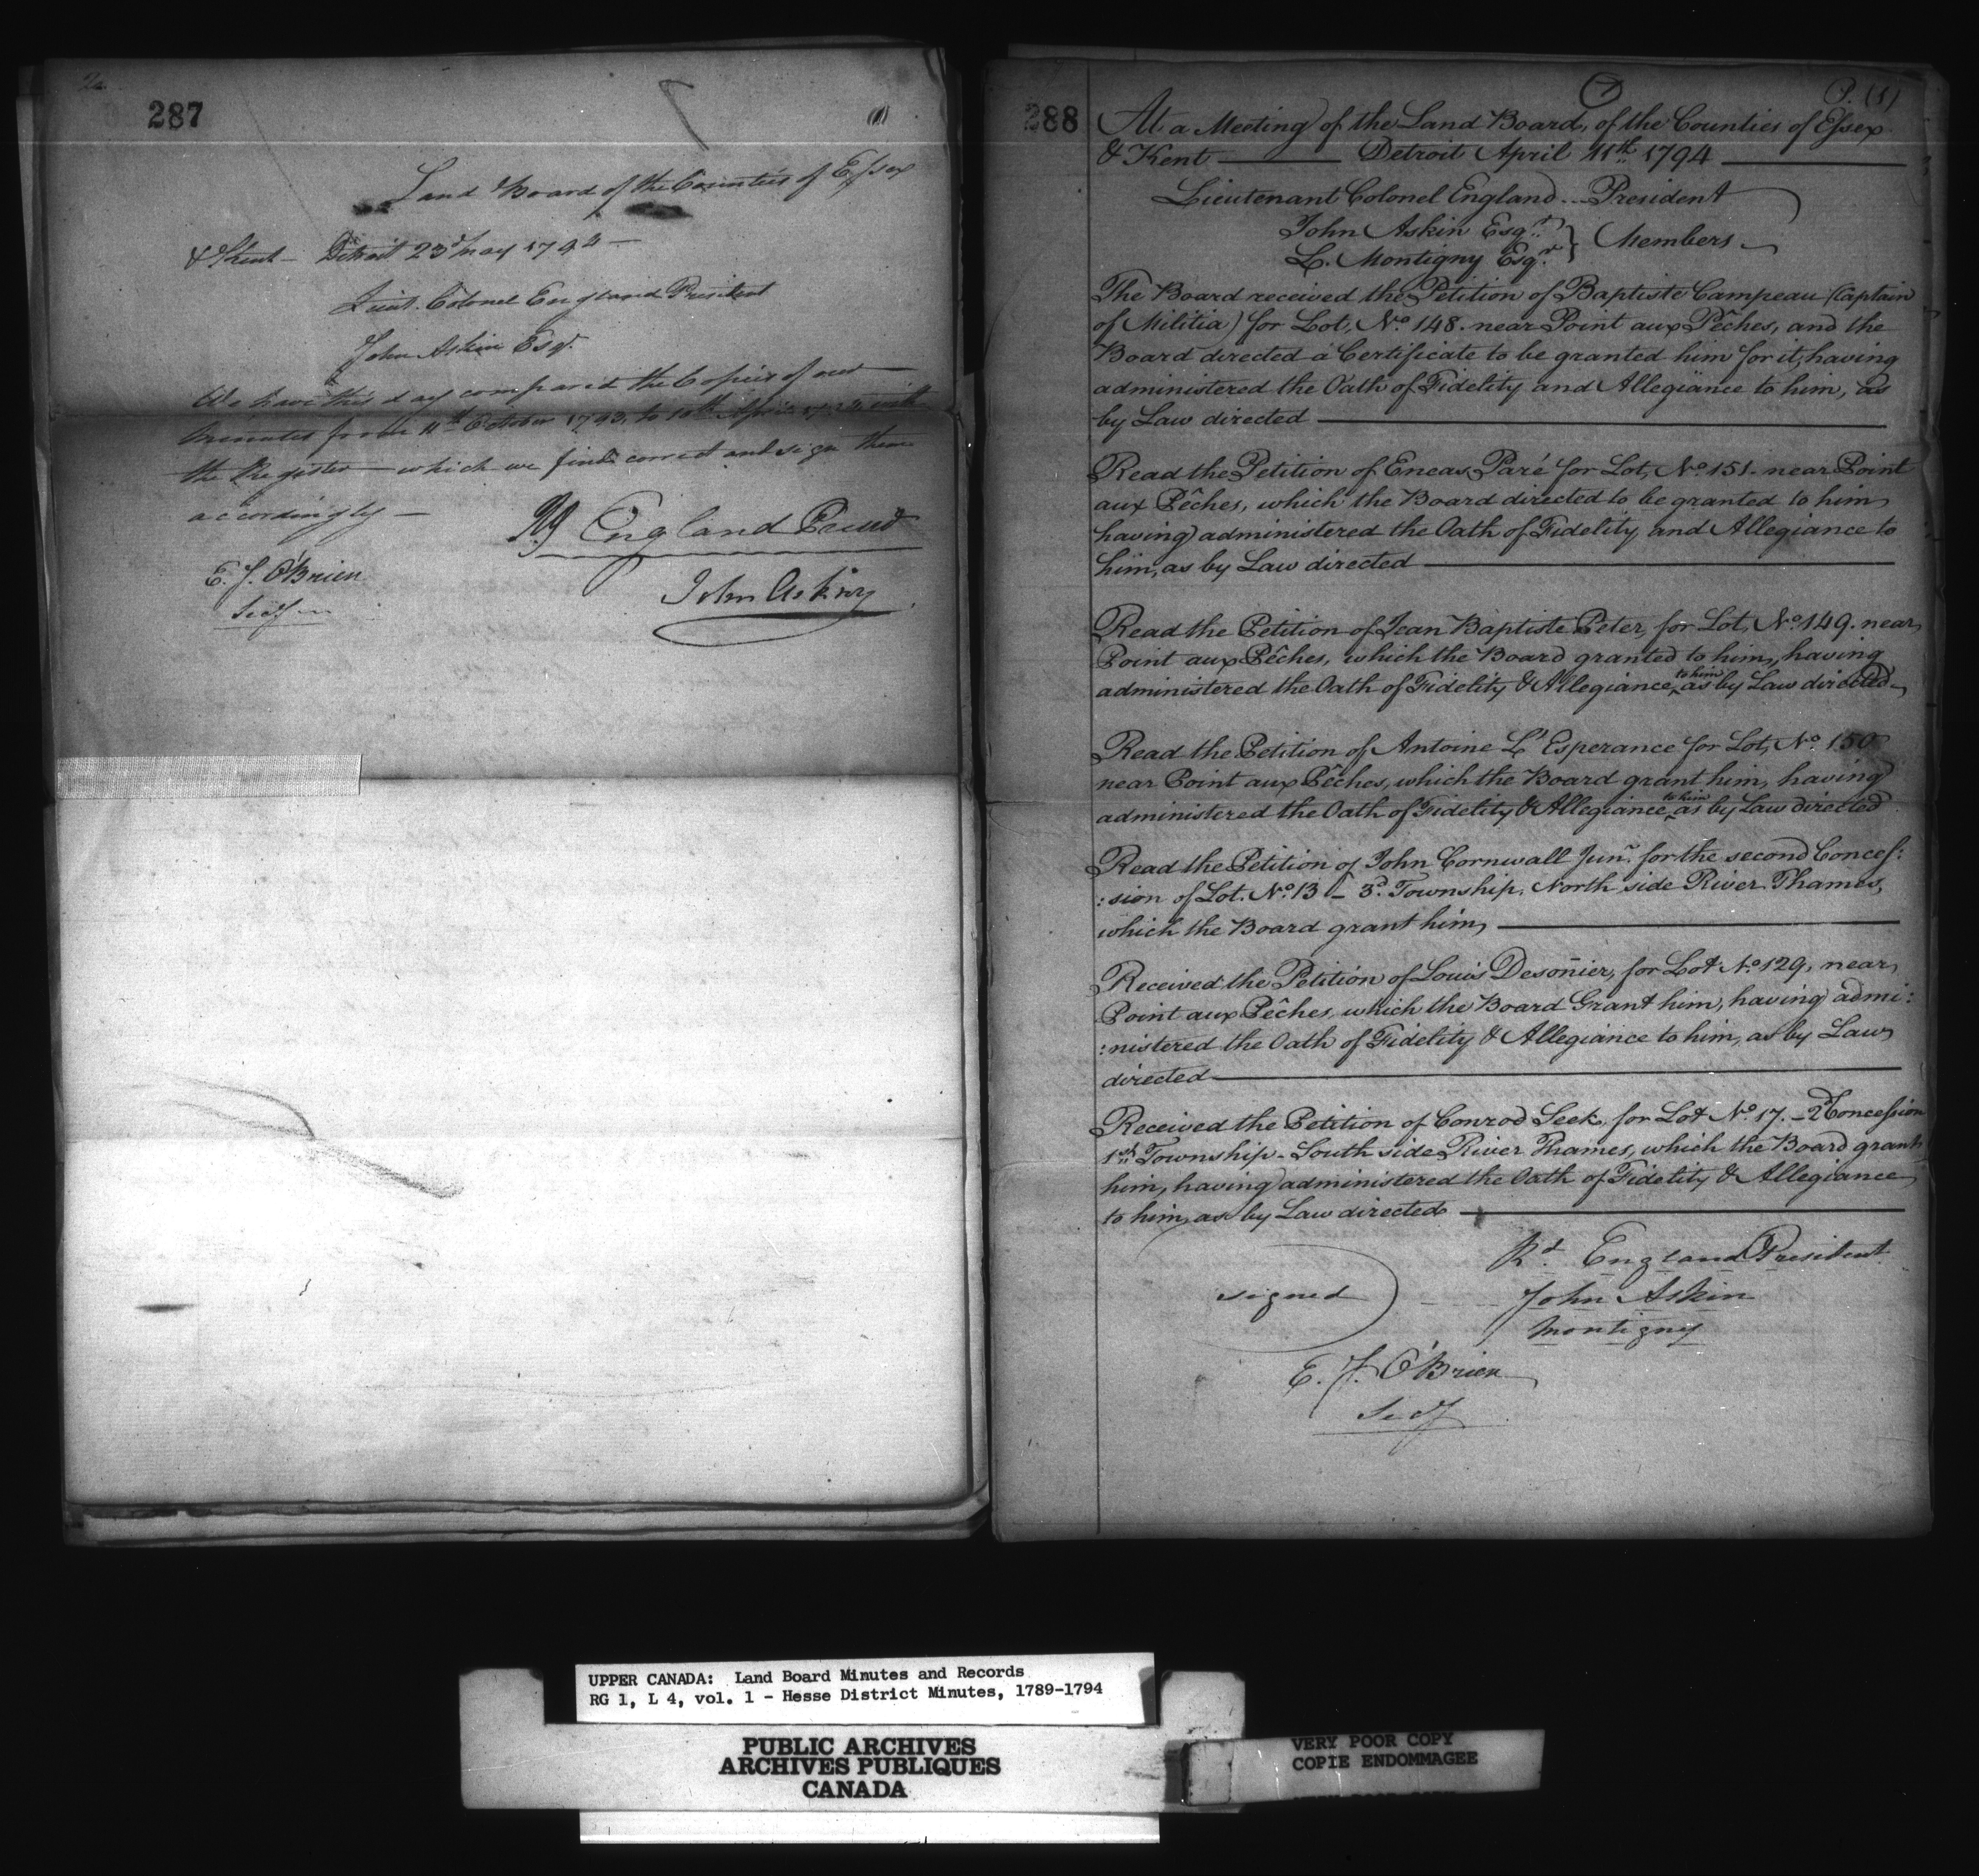 287
(1)
Land Board of the Counties of Essex
& Kent — Detroit 23d May 1794 —
Lieut. Colonel England President
John Askin Esqr.
We have this day compared the Copies of our
Minutes from 11th October 1793, to 10th April 1794, with
the Register — which we find correct and sign them
accordingly —
Rd England Presidt
E. J. O'Brien
John Askin
Secy
288
P. (1)
At a Meeting of the Land Board, of the Counties of Essex
& Kent — Detroit April 11th 1794 —
Lieutenant Colonel England ... President
John Askin Esqr.
L. Montigny Esqr. } Members
The Board received the Petition of Baptiste Campeau (Captain
of Militia) for Lot, No. 148. near Point aux Pêches, and the
Board directed a Certificate to be granted him for it, having
administered the Oath of Fidelity and Allegiance to him, as
by Law directed —
Read the Petition of Eneas Paré for Lot, No. 151. near Point
aux Pêches, which the Board directed to be granted to him
having administered the Oath of Fidelity and Allegiance to
him, as by Law directed —
Read the Petition of Jean Baptiste Peter, for Lot, No. 149. near
Point aux Pêches, which the Board granted to him, having
administered the Oath of Fidelity & Allegiance, to him as by Law directed
Read the Petition of Antoine L'Esperance for Lot, No. 150
near Point aux Pêches, which the Board grant him, having
administered the Oath of Fidelity & Allegiance, to him as by Law directed
Read the Petition of John Cornwall Junr. for the second Conces:
:sion of Lot. No. 13 - 3d. Township, North side River Thames,
which the Board grant him, —
Received the Petition of Louis Desonier, for Lot No. 129, near
Point aux Pêches, which the Board Grant him, having admi:
:nistered the Oath of Fidelity & Allegiance to him, as by Law
directed —
Received the Petition of Conrod Seek, for Lot No. 17. - 2d Concession
1st Township - South side River Thames, which the Board grant
him, having administered the Oath of Fidelity & Allegiance
to him, as by Law directed —
Rd. England President
signed ) John Askin
Montigny
E. J. O'Brien
Secy
UPPER CANADA: Land Board Minutes and Records
RG 1, L 4, vol. 1 - Hesse District Minutes, 1789-1794
PUBLIC ARCHIVES
ARCHIVES PUBLIQUES
CANADA
VERY POOR COPY
COPIE ENDOMMAGEE